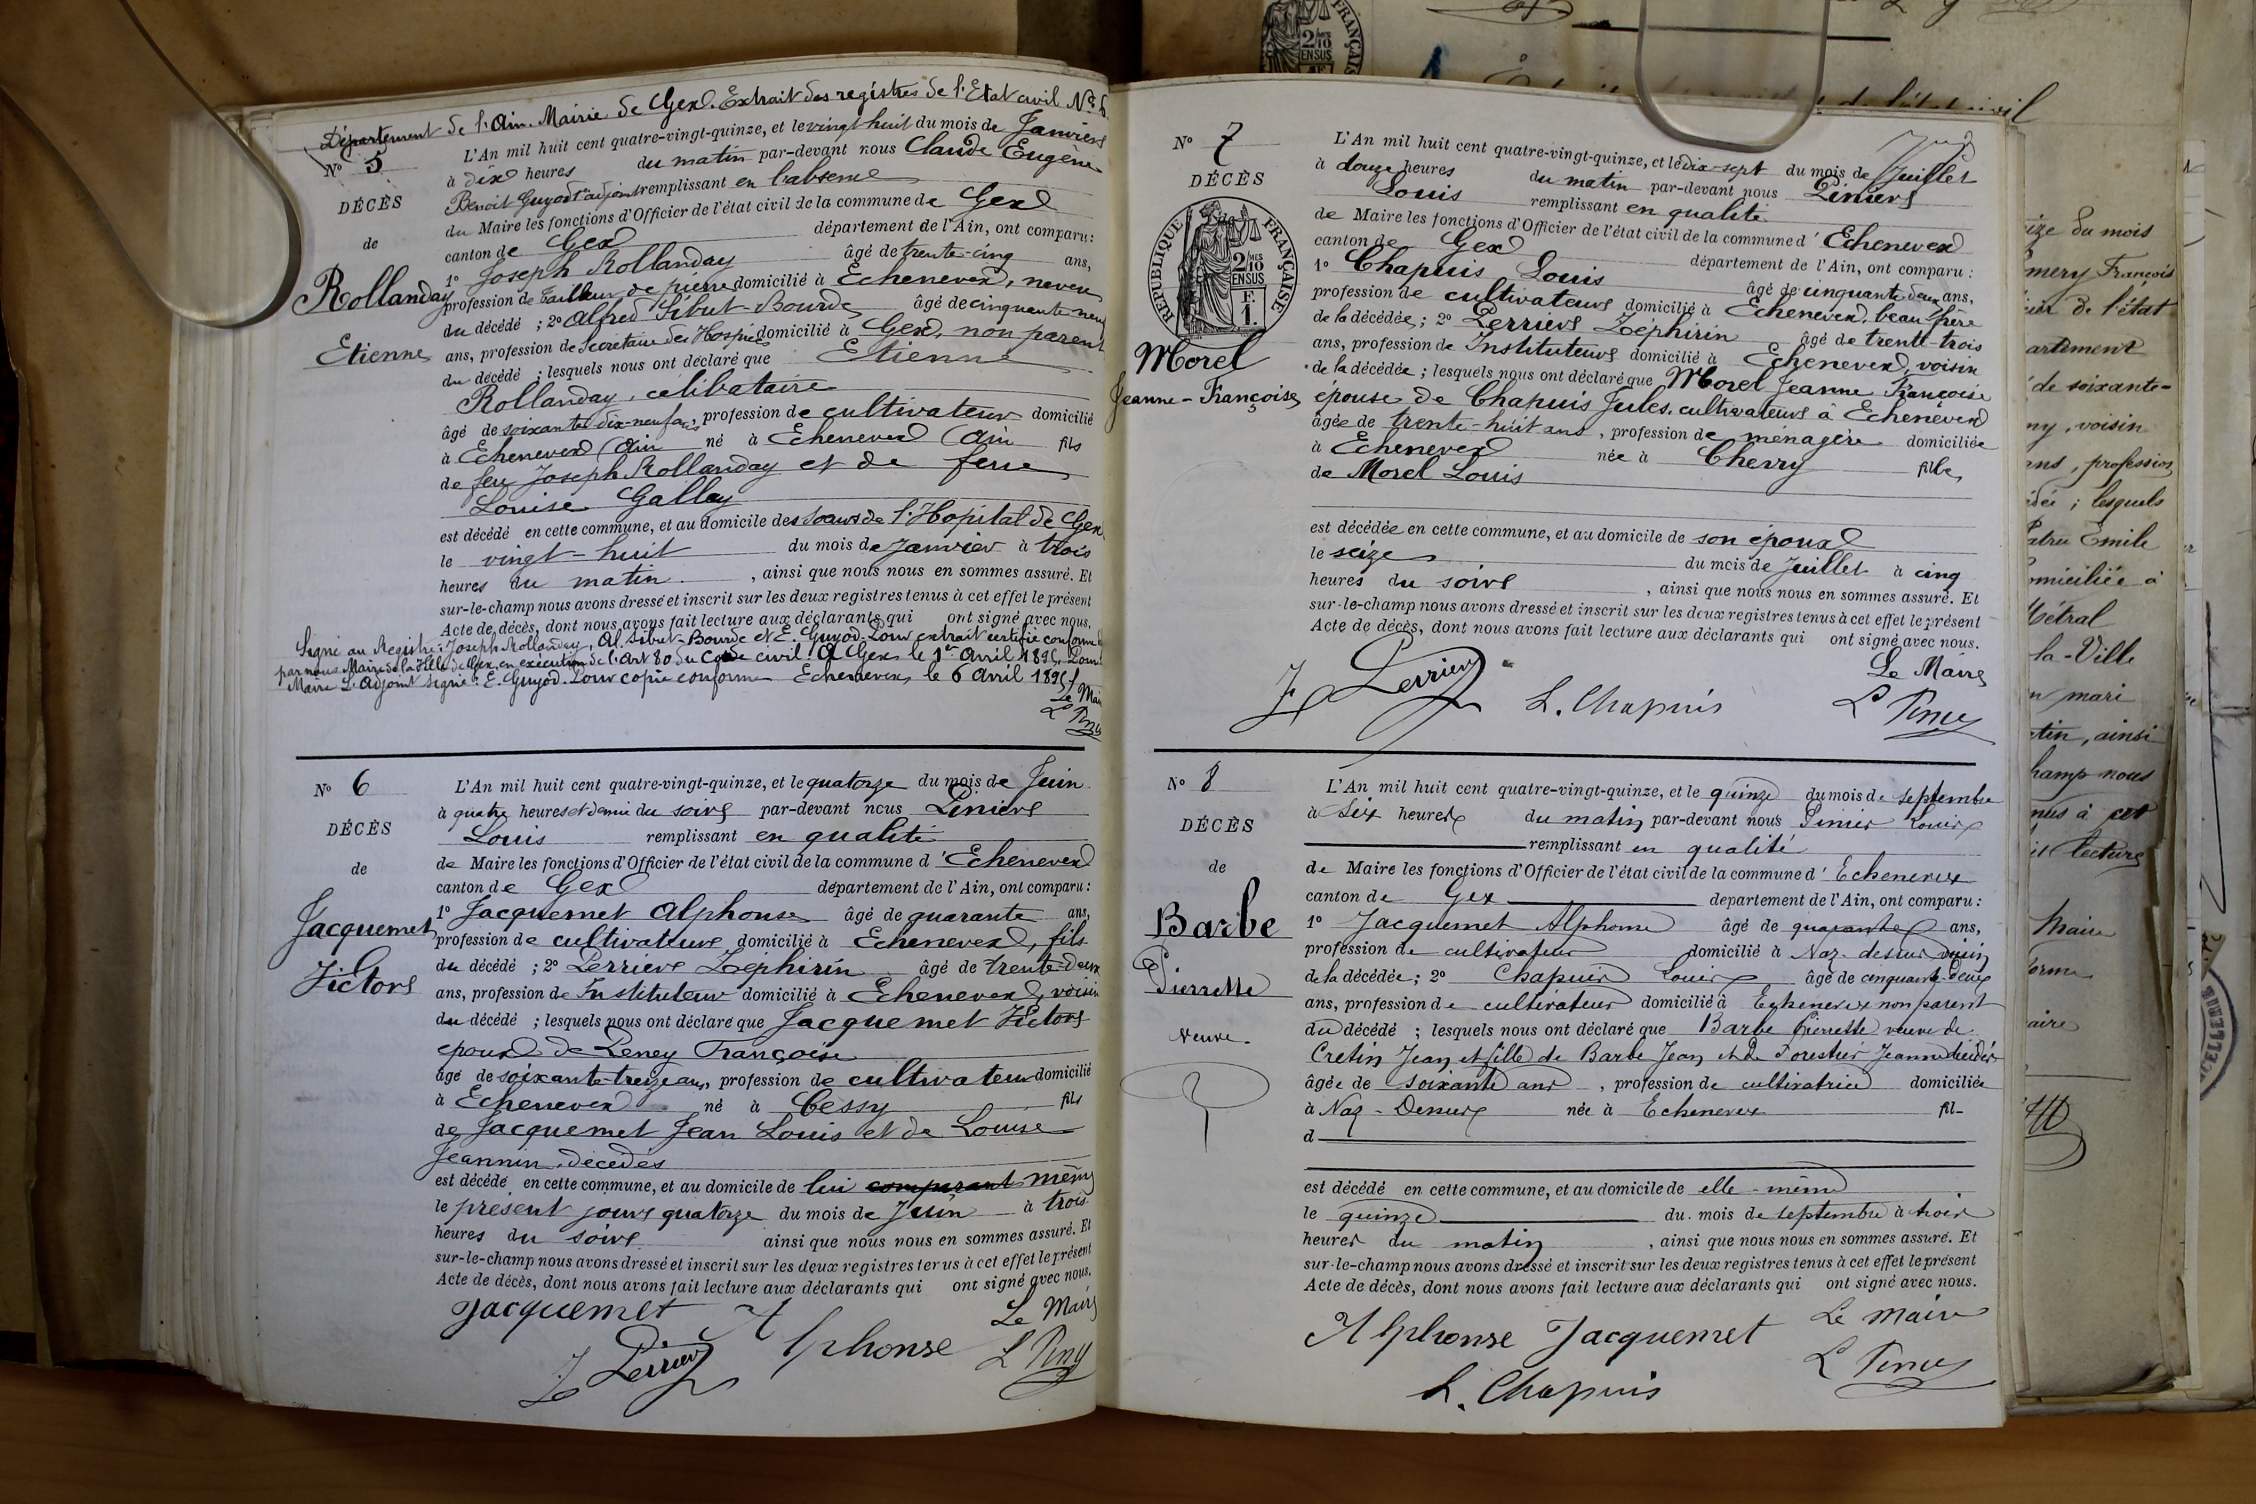 Département de l'Ain. Mairie de Gex. Extrait des registres de l'Etat civil No 6
No 5
DÉCÈS
de
Rollanday
Etienne
L'An mil huit cent quatre-vingt-quinze, et le vingt huit du mois de Janvier
à dix heures du matin par-devant nous Claude Eugène
Benoit Guyod 1er adjoint remplissant en l'absence
du Maire les fonctions d'Officier de l'état civil de la commune de Gex
canton de Gex département de l'Ain, ont comparu :
1o Joseph Rollanday âgé de trente-cinq ans,
profession de tailleur de pierre domicilié à Echenevex, neveu
du décédé ; 2o Alfred Sibut-Bourde âgé de cinquante neuf
ans, profession de Secrétaire des Hospices domicilié à Gex, non parent
du décédé ; lesquels nous ont déclaré que Etienne
Rollanday, célibataire
âgé de soixante dix-neuf ans, profession de cultivateur domicilié
à Echenevex (Ain né à Echenevex (Ain fils
de feu Joseph Rollanday et de feue
Louise Galley
est décédé en cette commune, et au domicile des soeurs de l'Hopital de Gex
le vingt-huit du mois de Janvier à trois
heures du matin, ainsi que nous nous en sommes assuré. Et
sur-le-champ nous avons dressé et inscrit sur les deux registres tenus à cet effet le présent
Acte de décès, dont nous avons fait lecture aux déclarants qui ont signé avec nous.
Signé au Registre : Joseph Rollanday, Al. Sibut-Bourde et E. Guyod. Pour extrait certifié conforme
par nous Maire de la Ville de Gex, en exécution de l'art 80 du Code civil. A Gex le 1er Avril 1895. Pour le
Maire L'Adjoint signé : E. Guyod. Pour copie conforme Echenevex, le 6 Avril 1895
Le Maire
No 6
DÉCÈS
de
Jacquemet
Victor
L'An mil huit cent quatre-vingt-quinze, et le quatorze du mois de Juin
à quatre heures et demie du soir par-devant nous Piniers
Louis remplissant en qualité
de Maire les fonctions d'Officier de l'état civil de la commune d'Echenevex
canton de Gex département de l'Ain, ont comparu :
1o Jacquemet Alphonse âgé de quarante ans,
profession de cultivateur domicilié à Echenevex, fils
du décédé ; 2o Perrier Zéphirin âgé de trente-deux
ans, profession de Instituteur domicilié à Echenevex, voisin
du décédé ; lesquels nous ont déclaré que Jacquemet Victor
époux de Peney Françoise
âgé de soixante-treize ans, profession de cultivateur domicilié
à Echenevex né à Cessy fils
de Jacquemet Jean Louis et de Louise
Jeannin, décédés
est décédé en cette commune, et au domicile de lui comparant même
le présent jour quatorze du mois de Juin à trois
heures du soir ainsi que nous nous en sommes assuré. Et
sur-le-champ nous avons dressé et inscrit sur les deux registres tenus à cet effet le présent
Acte de décès, dont nous avons fait lecture aux déclarants qui ont signé avec nous.
Jacquemet Alphonse
Le Maire
Z Perrier
No 7
DÉCÈS
RÉPUBLIQUE FRANÇAISE
2/10 EN SUS
F.
1.
Morel
Jeanne-Françoise
L'An mil huit cent quatre-vingt-quinze, et le dix-sept du mois de Juillet
à douze heures du matin par-devant nous Piniers
Louis remplissant en qualité
de Maire les fonctions d'Officier de l'état civil de la commune d'Echenevex
canton de Gex département de l'Ain, ont comparu :
1o Chapuis Louis âgé de cinquante-deux ans,
profession de cultivateur domicilié à Echenevex, beau-frère
de la décédée ; 2o Perrier Zéphirin âgé de trente-trois
ans, profession de Instituteur domicilié à Echenevex, voisin
de la décédée ; lesquels nous ont déclaré que Morel Jeanne Françoise
épouse de Chapuis Jules, cultivateur à Echenevex
âgée de trente-huit ans, profession de ménagère domiciliée
à Echenevex née à Chevry fille
de Morel Louis
est décédée en cette commune, et au domicile de son époux
le seize du mois de Juillet à cinq
heures du soir, ainsi que nous nous en sommes assuré. Et
sur-le-champ nous avons dressé et inscrit sur les deux registres tenus à cet effet le présent
Acte de décès, dont nous avons fait lecture aux déclarants qui ont signé avec nous.
Le Maire
Z Perrier L. Chapuis
No 8
DÉCÈS
de
Barbe
Pierrette
Veuve
L'An mil huit cent quatre-vingt-quinze, et le quinze du mois de septembre
à six heures du matin par-devant nous Pinier Louis
remplissant en qualité
de Maire les fonctions d'Officier de l'état civil de la commune d'Echenevex
canton de Gex département de l'Ain, ont comparu :
1o Jacquemet Alphonse âgé de quarante ans,
profession de cultivateur domicilié à Naz-dessus voisin
de la décédée ; 2o Chapuis Louis âgé de cinquante-deux
ans, profession de cultivateur domicilié à Echenevex non parent
du décédé ; lesquels nous ont déclaré que Barbe Pierrette veuve de
Cretin Jean et fille de Barbe Jean et de Forestier Jeanne
âgée de soixante ans, profession de cultivatrice domiciliée
à Naz-Dessus née à Echenevex fil
d
est décédé en cette commune, et au domicile de elle-même
le quinze du mois de septembre à trois
heures du matin, ainsi que nous nous en sommes assuré. Et
sur-le-champ nous avons dressé et inscrit sur les deux registres tenus à cet effet le présent
Acte de décès, dont nous avons fait lecture aux déclarants qui ont signé avec nous.
Alphonse Jacquemet Le Maire
L. Chapuis
du mois
François
de l'état
de soixante-
voisin
profession
lesquels
Emile
à
Métral
la-Ville
mari
ainsi
nous
à cet
lecture
Maire